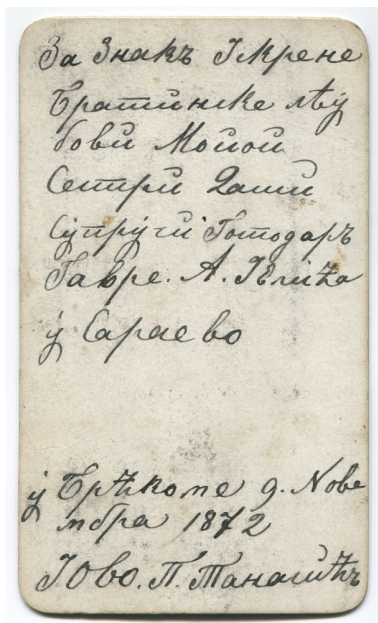 За Знакъ Іскрене
Братинске лѣу
бови Мойой
Сестри Даши
супруги Господаръ
Гавре. А. Іелића
у Сараево
у Брћкоме д. Нове
мбра 1872
Іово. П. Танасић